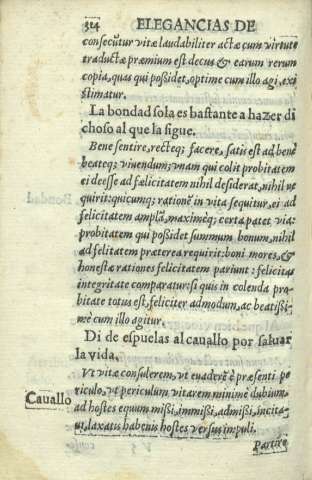 324 ELEGANCIAS DE
consecũtur vitæ laudabiliter actæ cum virtute
traductæ præmium est decus & earum rerum
copia, quas qui poßidet, optime cum illo agi, exi
stimatur.
La bondad sola es bastante a hazer di
choso al que la sigue.
Bene sentire, recteq; facere, satis est ad benè
beateq; viuendum; vnam qui colit probitatem
ei deesse ad fœlicitatem nihil desiderat, nihil re
quirit: quicumq; rationẽ in vita sequitur, ei ad
felicitatem ampla, maximéq; certa patet via:
probitatem qui poßidet summum bonum, nihil
ad felitatem præterea requirit: boni mores, &
honestæ rationes felicitatem pariunt: felicitas
integritate comparatur: si quis in colenda pro-
bitate totus est, feliciter admodum, ac beatißi-
mè cum illo agitur.
Di de espuelas al cauallo por saluar
la vida.
Vt vitæ consulerem, vt euaderẽ è præsenti pe
riculo, vt periculum vitarem minimè dubium,
Cauallo ad hostes equum misi, immisi, admisi, incita-
ui, laxatis habenis hostes versus impuli.
Partiro